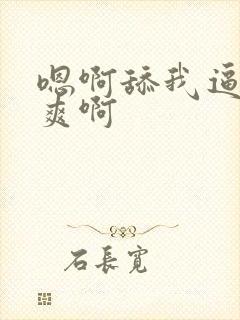 嗯啊舔我逼
爽啊
石長寬